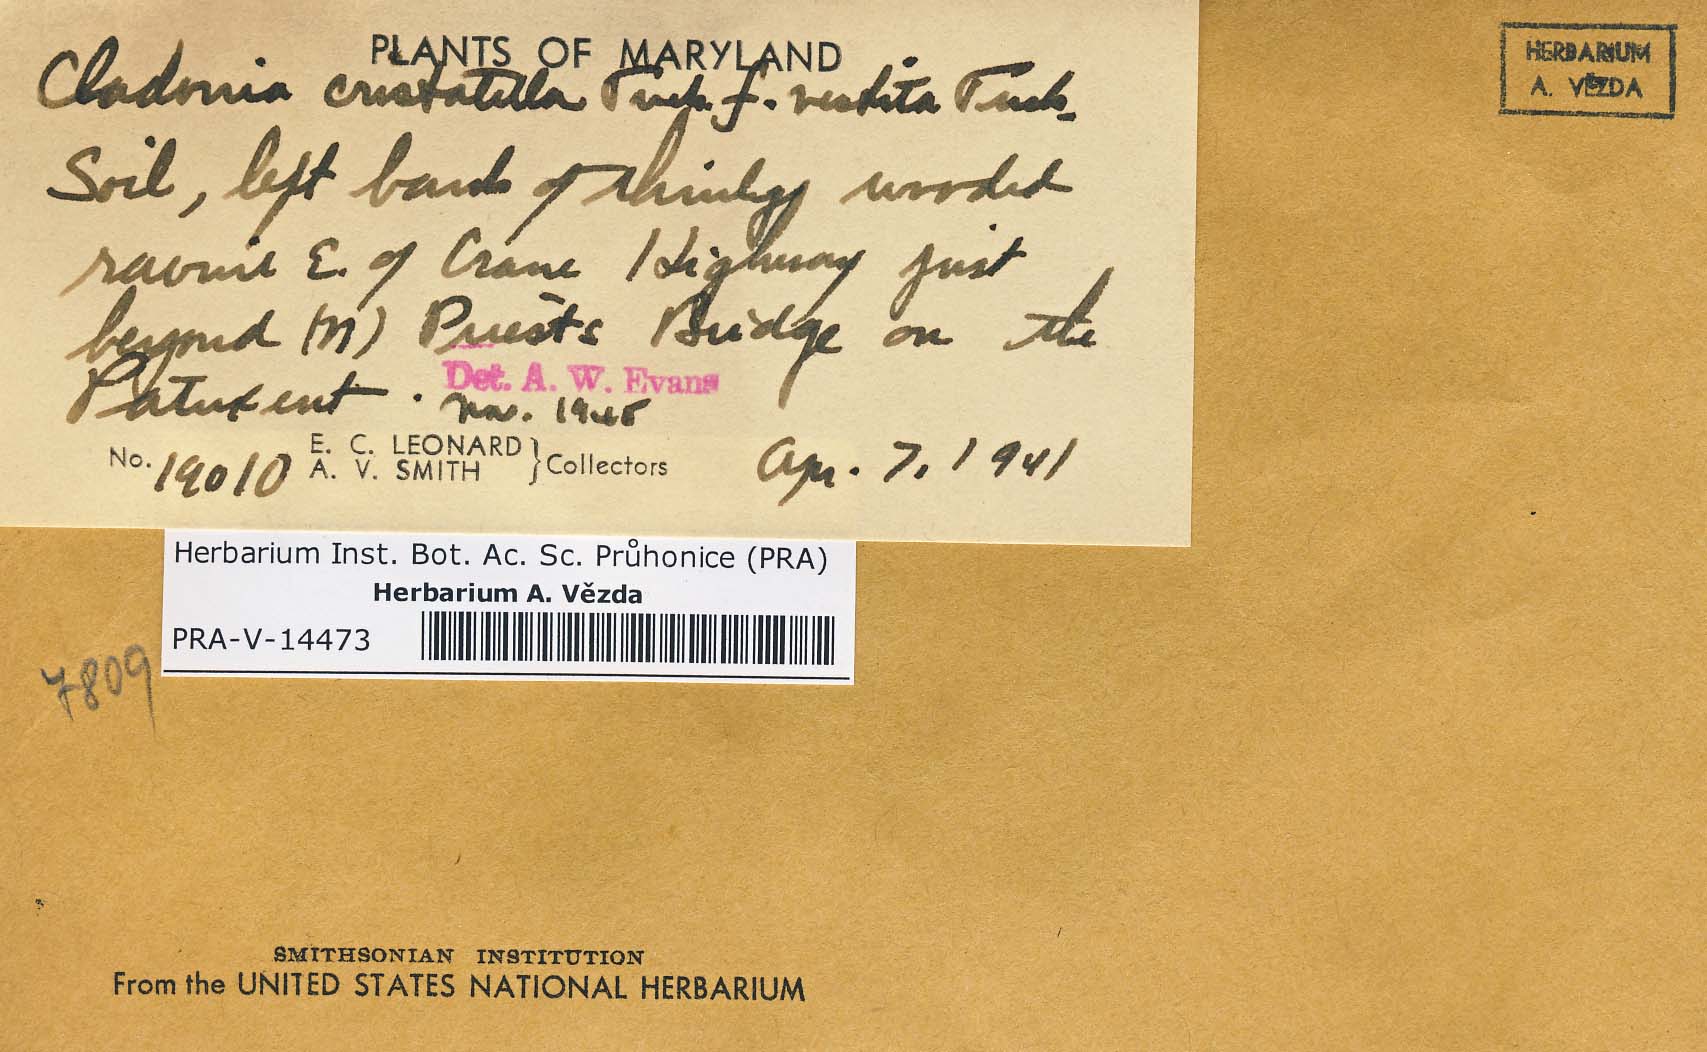 PLANTS OF MARYLAND
Cladonia cristatella Tuck. f. vestita Tuck.
Soil, left bank of thinly wooded
ravine E. of Crane Highway just
beyond (N) Priests Bridge on the
Patuxent.
Det. A. W. Evans
Nov. 1945
No. 19010 E. C. LEONARD
A. V. SMITH } Collectors Apr. 7, 1941
HERBARIUM
A. VĚZDA
Herbarium Inst. Bot. Ac. Sc. Průhonice (PRA)
Herbarium A. Vězda
PRA-V-14473
7809
SMITHSONIAN INSTITUTION
From the UNITED STATES NATIONAL HERBARIUM